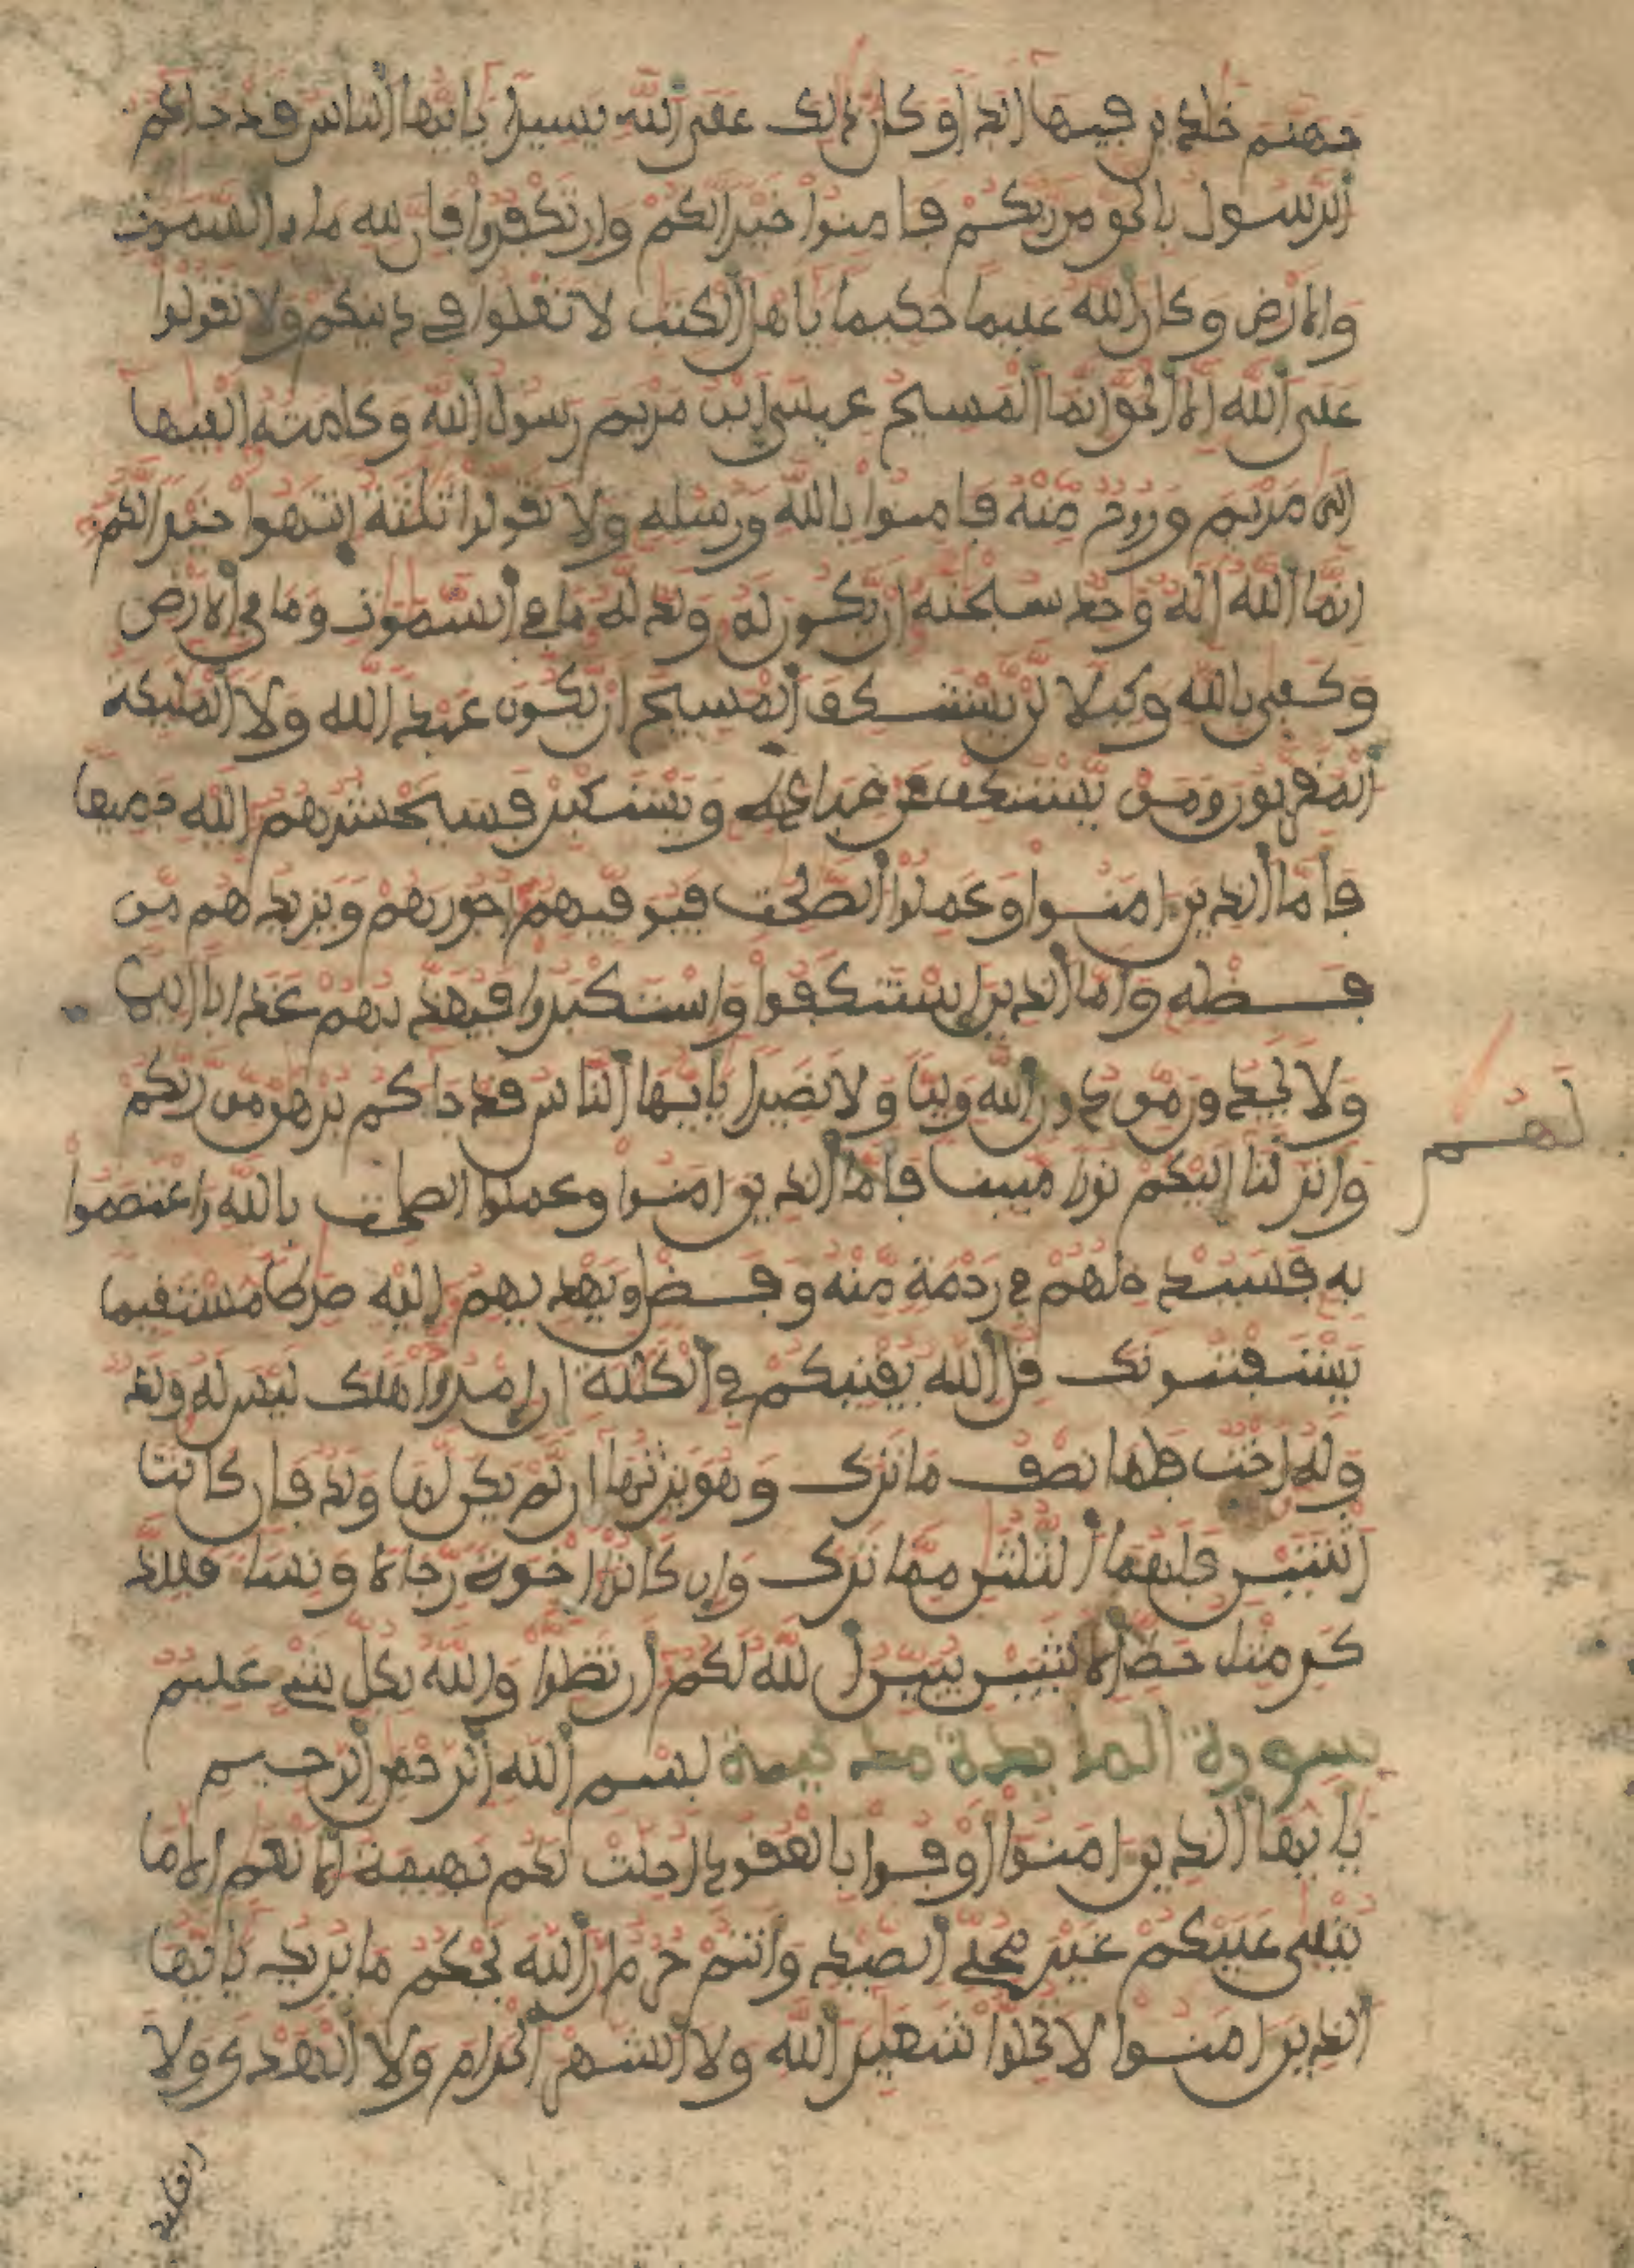 جهنم خلدين فيها ابدا وكان ذلك على الله يسيرا يايها الناس قد جاكم
الرسول بالحق من ربكم فامنوا خيرا لكم وان تكفروا فان لله ما في السموت
والارض وكان الله عليما حكيما ياهل الكتب لا تغلوا في دينكم ولا تقولوا
على الله الا الحق انما المسيح عيسى ابن مريم رسول الله وكلمته القيها
الى مريم وروح منه فامنوا بالله ورسله ولا تقولوا ثلثة انتهوا خيرا لكم
انما الله اله وحد سبحنه ان يكون له ولد له ما في السموت وما في الارض
وكفى بالله وكيلا لن يستنكف المسيح ان يكون عبد الله ولا المليكة
المقربون ومن يستنكف عن عبادته ويستكبر فسيحشرهم الله جميعا
فاما الذين امنوا وعملوا الصلحت فيوفيهم اجورهم ويزيدهم من
فضله واما الذين استنكفوا واستكبروا فيعذبهم عذابا اليما
ولا يجدون من دون الله وليا ولا نصيرا يايها الناس قد جاكم برهن من ربكم
لهم
وانزلنا اليكم نورا مبينا فاما الذين امنوا وعملوا الصلحت بالله واعتصموا
به فسيدخلهم في رحمة منه وفضل ويهديهم اليه صرطا مستقيما
يستفتونك قل الله يفتيكم في الكللة ان امروا هلك ليس له ولد
وله اخت فلها نصف ما ترك وهو يرثها ان لم يكن لها ولد فان كانتا
اثنتين فلهما الثلثن مما ترك وان كانوا اخوة رجالا ونسا فللذ
كر مثل حظ الانثيين يبين الله لكم ان تضلوا والله بكل شيء عليم
سورة المايدة مدنية بسم الله الرحمن الرحيم
يايها الذين امنوا اوفوا بالعقود احلت لكم بهيمة الانعم الا ما
يتلى عليكم غير محلي الصيد وانتم حرم ان الله يحكم ما يريد يايها
الذين امنوا لا تحلوا شعير الله ولا الشهر الحرام ولا الهدي ولا
القليد